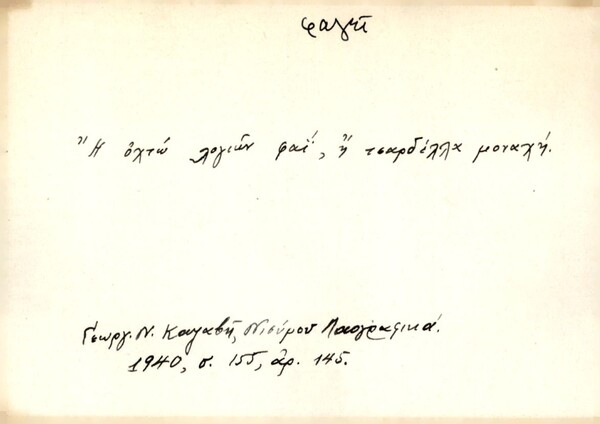 φαγῒ
Ἢ ὀχτὼ λογιῶν φαΐ, ἢ τσαρδέλλα μοναχή.
Γεωργ. Ν. Καζαβῆ, Νισύρου Λαογραφικά.
1940, σ. 155, ἀρ. 145.